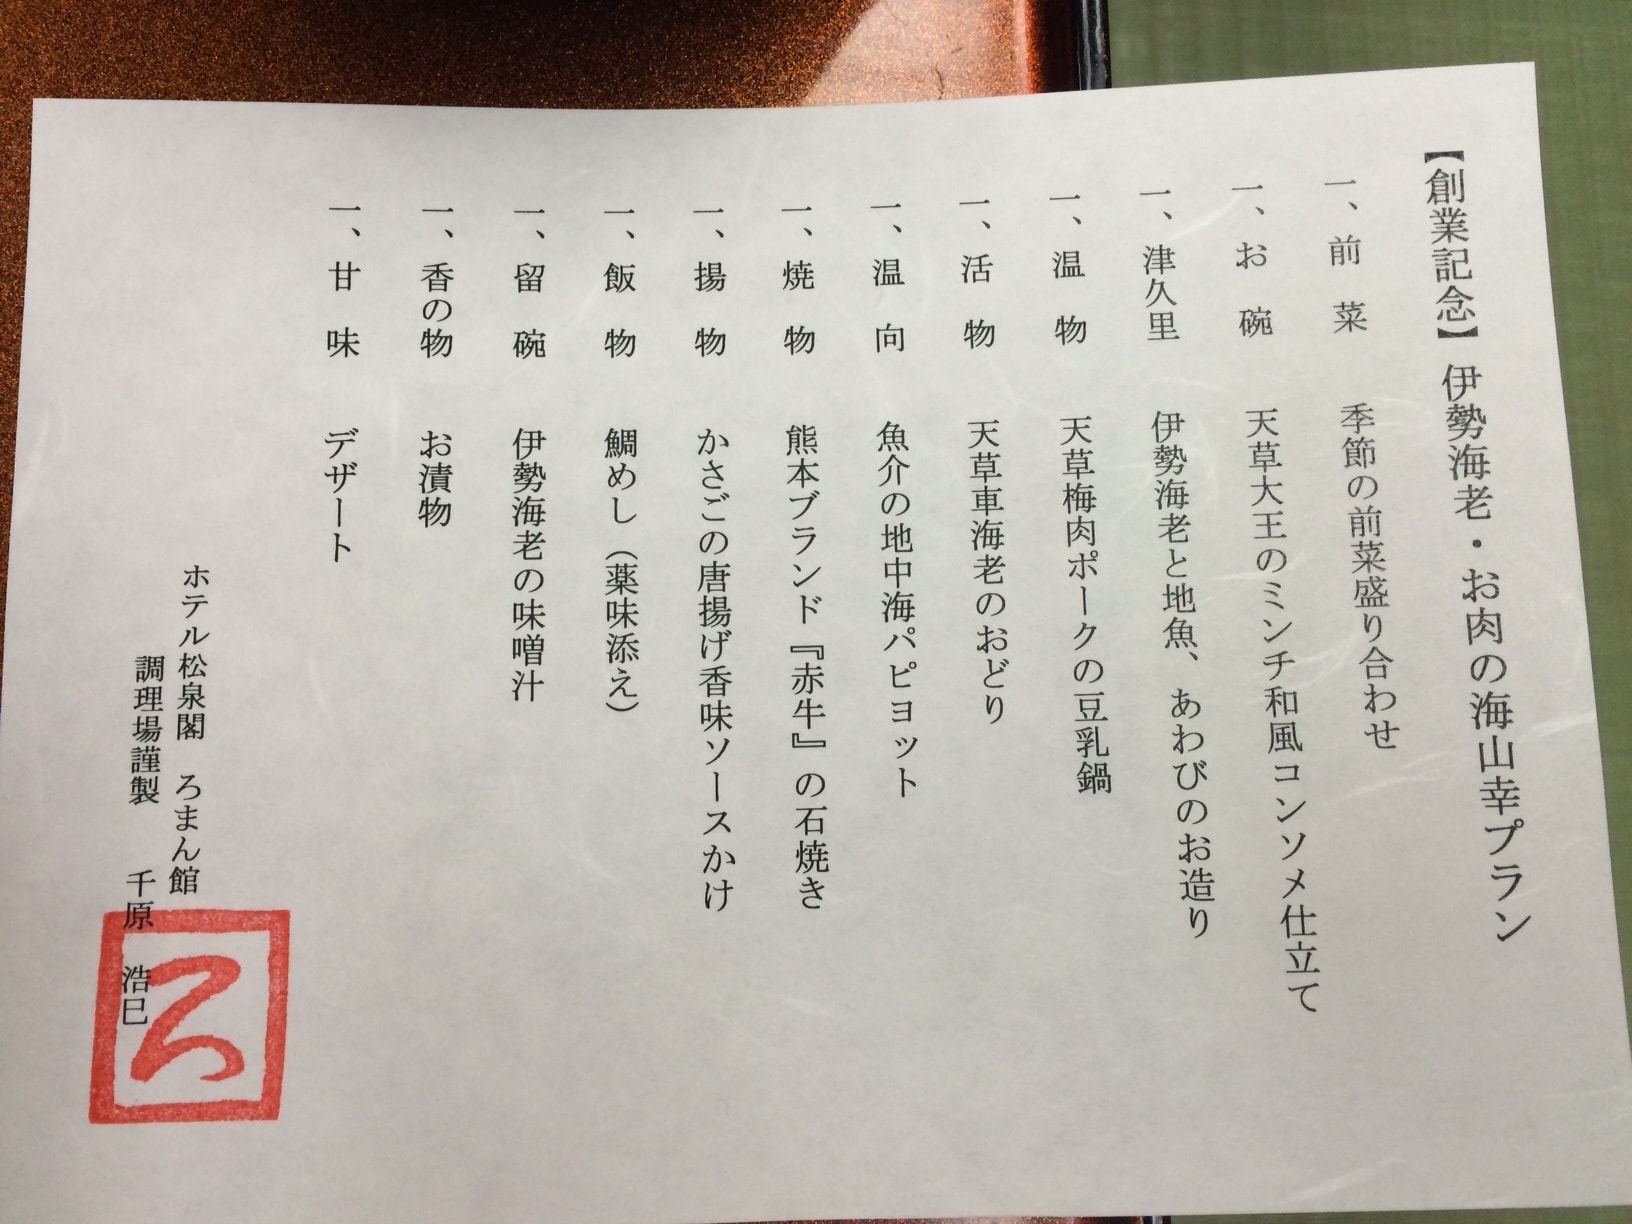 【創業記念】伊勢海老・お肉の海山幸プラン
一、前菜 季節の前菜盛り合わせ
一、お碗 天草大王のミンチ和風コンソメ仕立て
一、津久里 伊勢海老と地魚、あわびのお造り
一、温物 天草梅肉ポークの豆乳鍋
一、活物 天草車海老のおどり
一、温向 魚介の地中海パピヨット
一、焼物 熊本ブランド『赤牛』の石焼き
一、揚物 かさごの唐揚げ香味ソースかけ
一、飯物 鯛めし（薬味添え）
一、留碗 伊勢海老の味噌汁
一、香の物 お漬物
一、甘味 デザート
ホテル松泉閣 ろまん館
調理場謹製 千原 浩巳
ろ